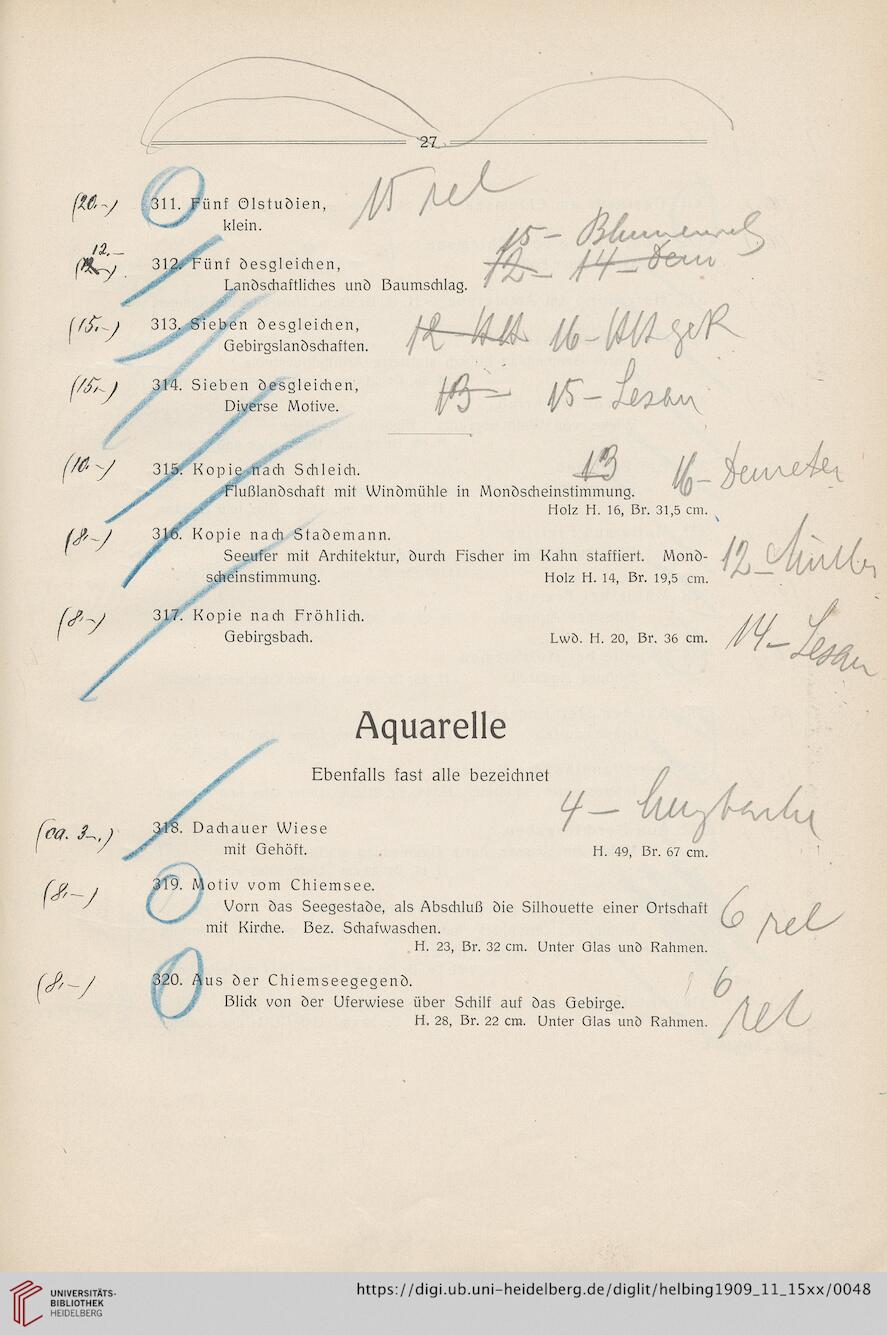 27
(20.-) 311. Fünf Ölstudien, 15 ret
klein.
15 -
12.- 12 - 14 -
312. Fünf desgleichen,
Landschaftliches und Baumschlag.
(15.-) 313. Sieben desgleichen, 12 - 16 -
Gebirgslandschaften.
(15.-) 314. Sieben desgleichen, 13 - 15 -
Diverse Motive.
(10.-) 315. Kopie nach Schleich. 13 16 - Demeter
Flußlandschaft mit Windmühle in Mondscheinstimmung.
Holz H. 16, Br. 31,5 cm.
(8.-) 316. Kopie nach Stademann.
Seeufer mit Architektur, durch Fischer im Kahn staffiert. Mond- 12 - Müller
scheinstimmung. Holz H. 14, Br. 19,5 cm.
(8.-) 317. Kopie nach Fröhlich.
Gebirgsbach. Lwd. H. 20, Br. 36 cm. 14 -
Aquarelle
Ebenfalls fast alle bezeichnet
4 -
(ca. 3.-) 318. Dachauer Wiese
mit Gehöft. H. 49, Br. 67 cm.
(8.-) 319. Motiv vom Chiemsee.
Vorn das Seegestade, als Abschluß die Silhouette einer Ortschaft 6 ret
mit Kirche. Bez. Schafwaschen.
H. 23, Br. 32 cm. Unter Glas und Rahmen.
(8.-) 320. Aus der Chiemseegegend. 6
Blick von der Uferwiese über Schilf auf das Gebirge.
H. 28, Br. 22 cm. Unter Glas und Rahmen. ret
UNIVERSITÄTS-
BIBLIOTHEK
HEIDELBERG
https://digi.ub.uni-heidelberg.de/diglit/helbing1909_11_15xx/0048